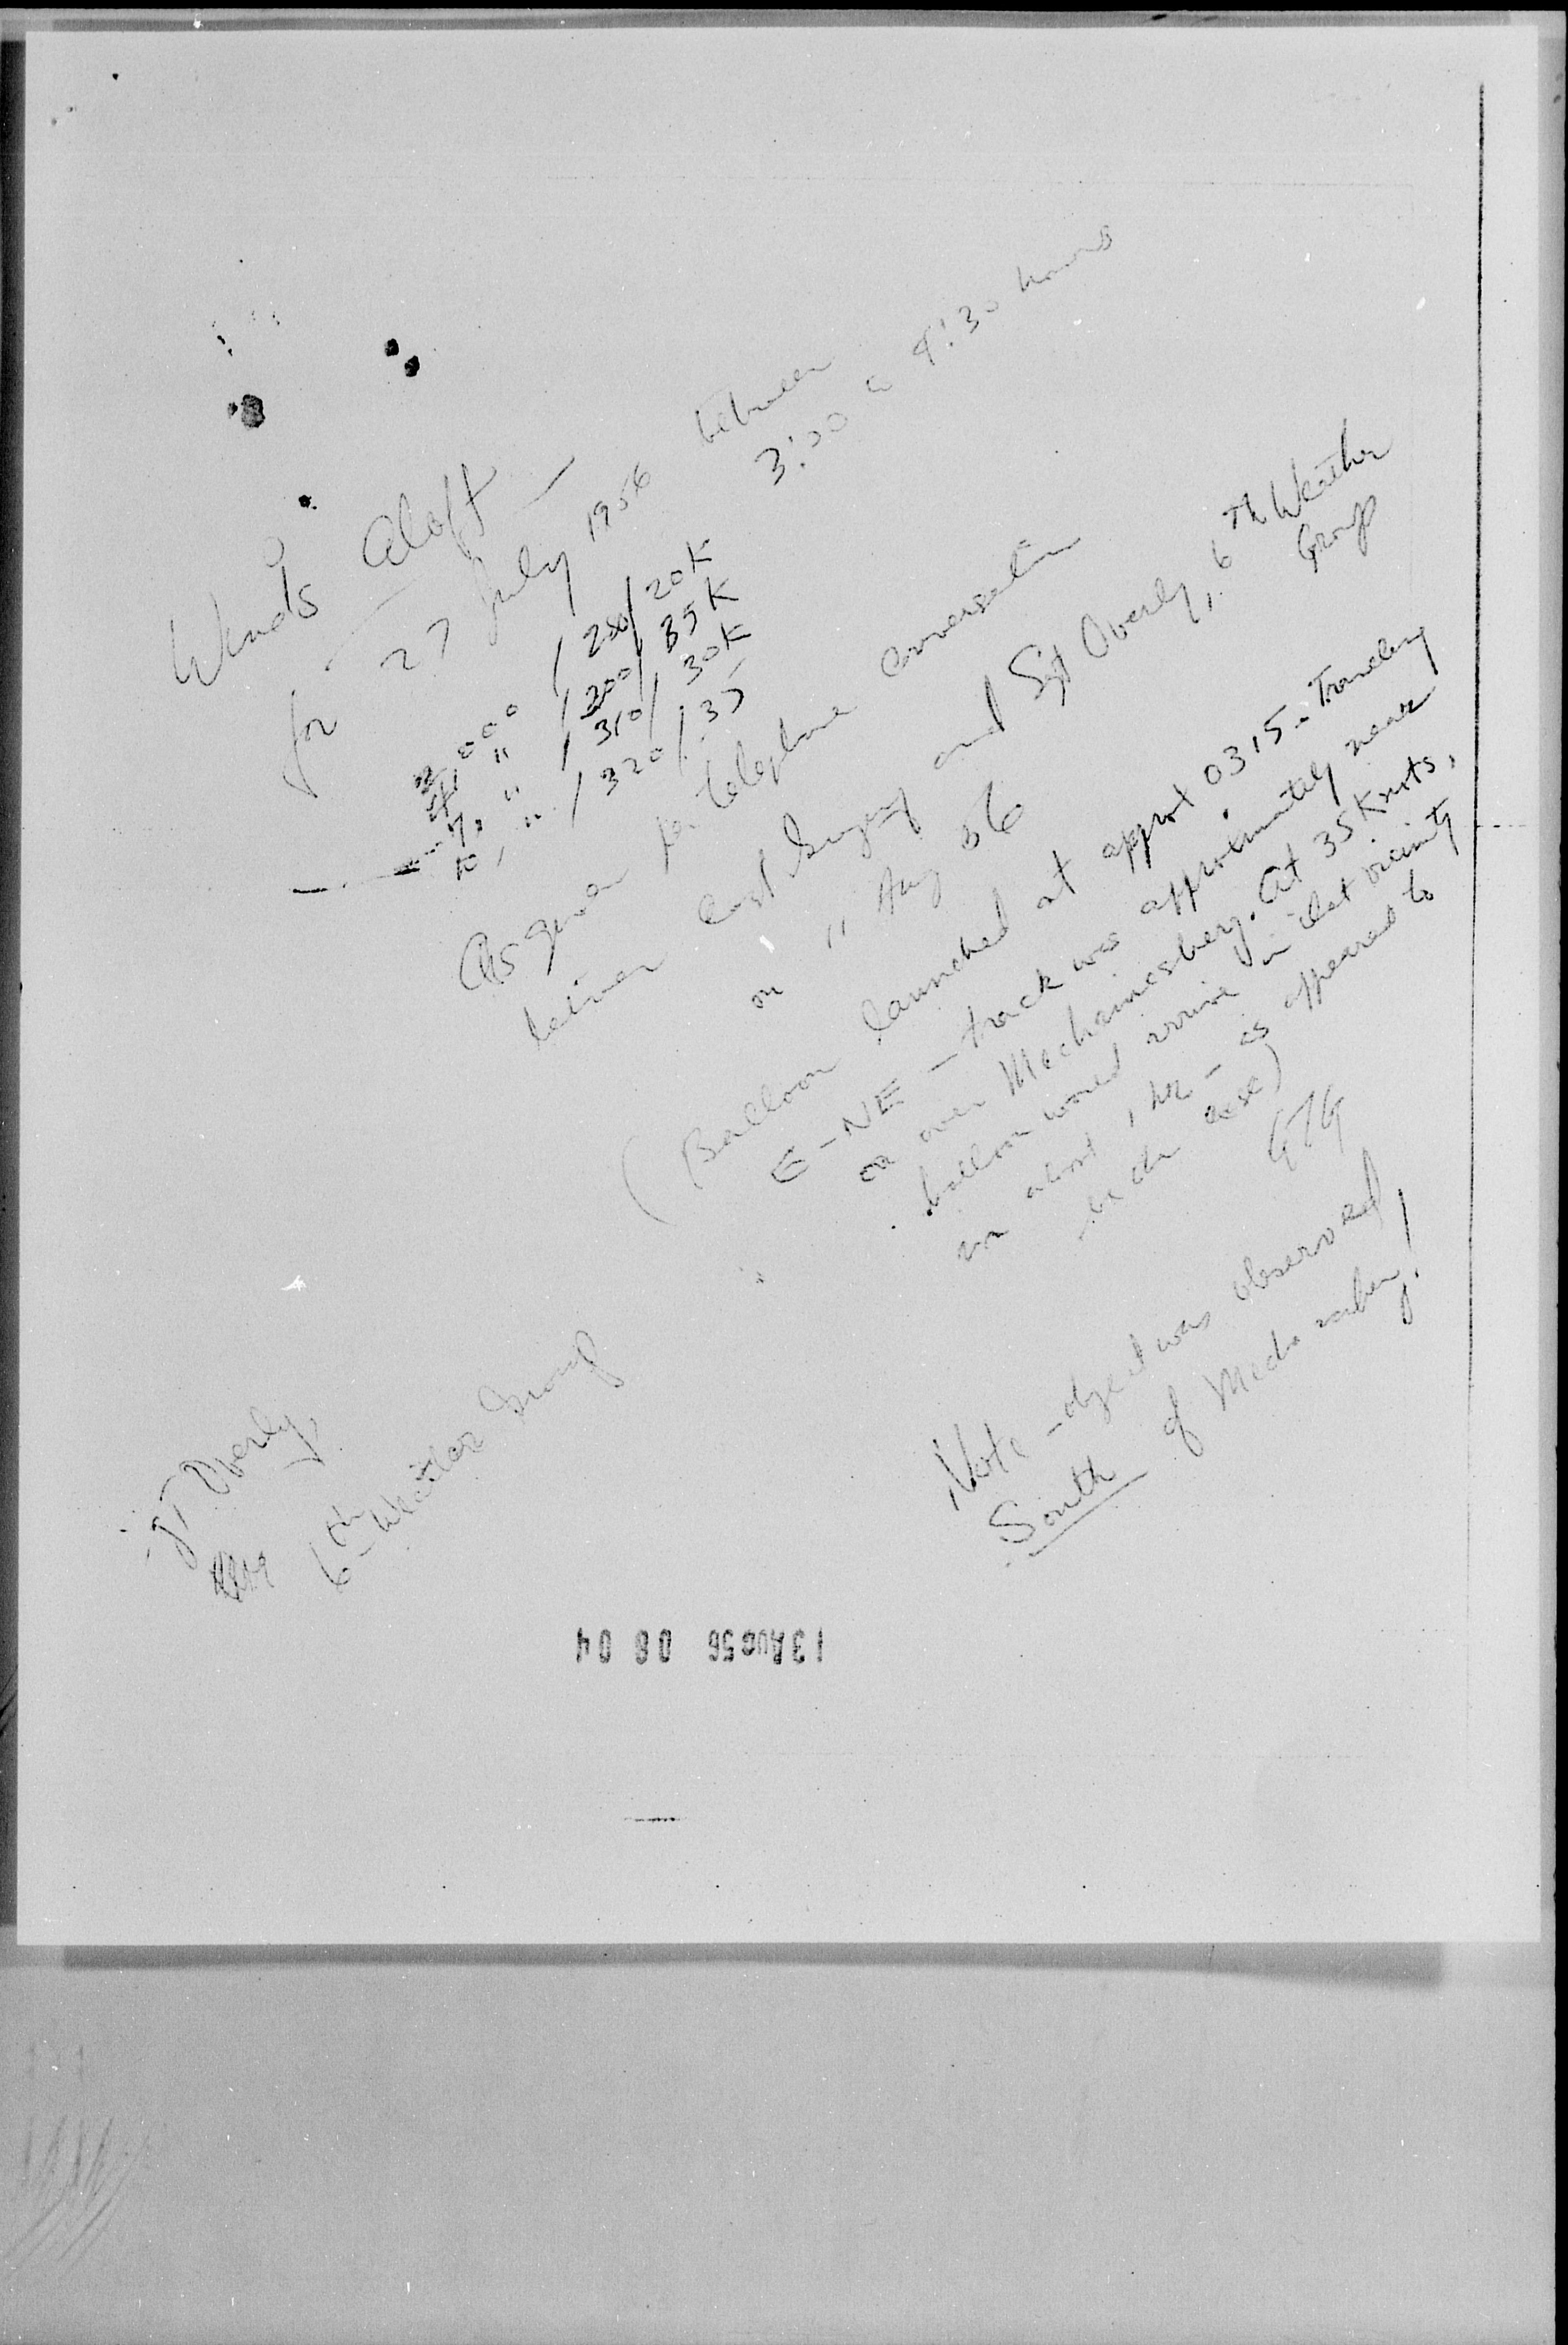 Winds aloft —
for 27 July 1956 between
3:00 a 4:30 hours
2,000 / 250/ 20K
" / 200/ 35K
7, " / 310/ 30K
10, " / 320/ 35
As given per telephone conversation
between Capt Gregory and Sgt Overly, 6th Weather
Group
on 11 Aug 56
(Balloon launched at approx 0315 - Traveling
E-NE - track was approximately near
or over Mechanicsberg. At 35 Knots,
balloon would arrive in that vicinity
in about 1 hr - as appeared to
be the case)
GTG
Note - object was observed
South of Mechanicsberg!
Sgt Overly,
6th Weather Group
13 AUG 56 08 04